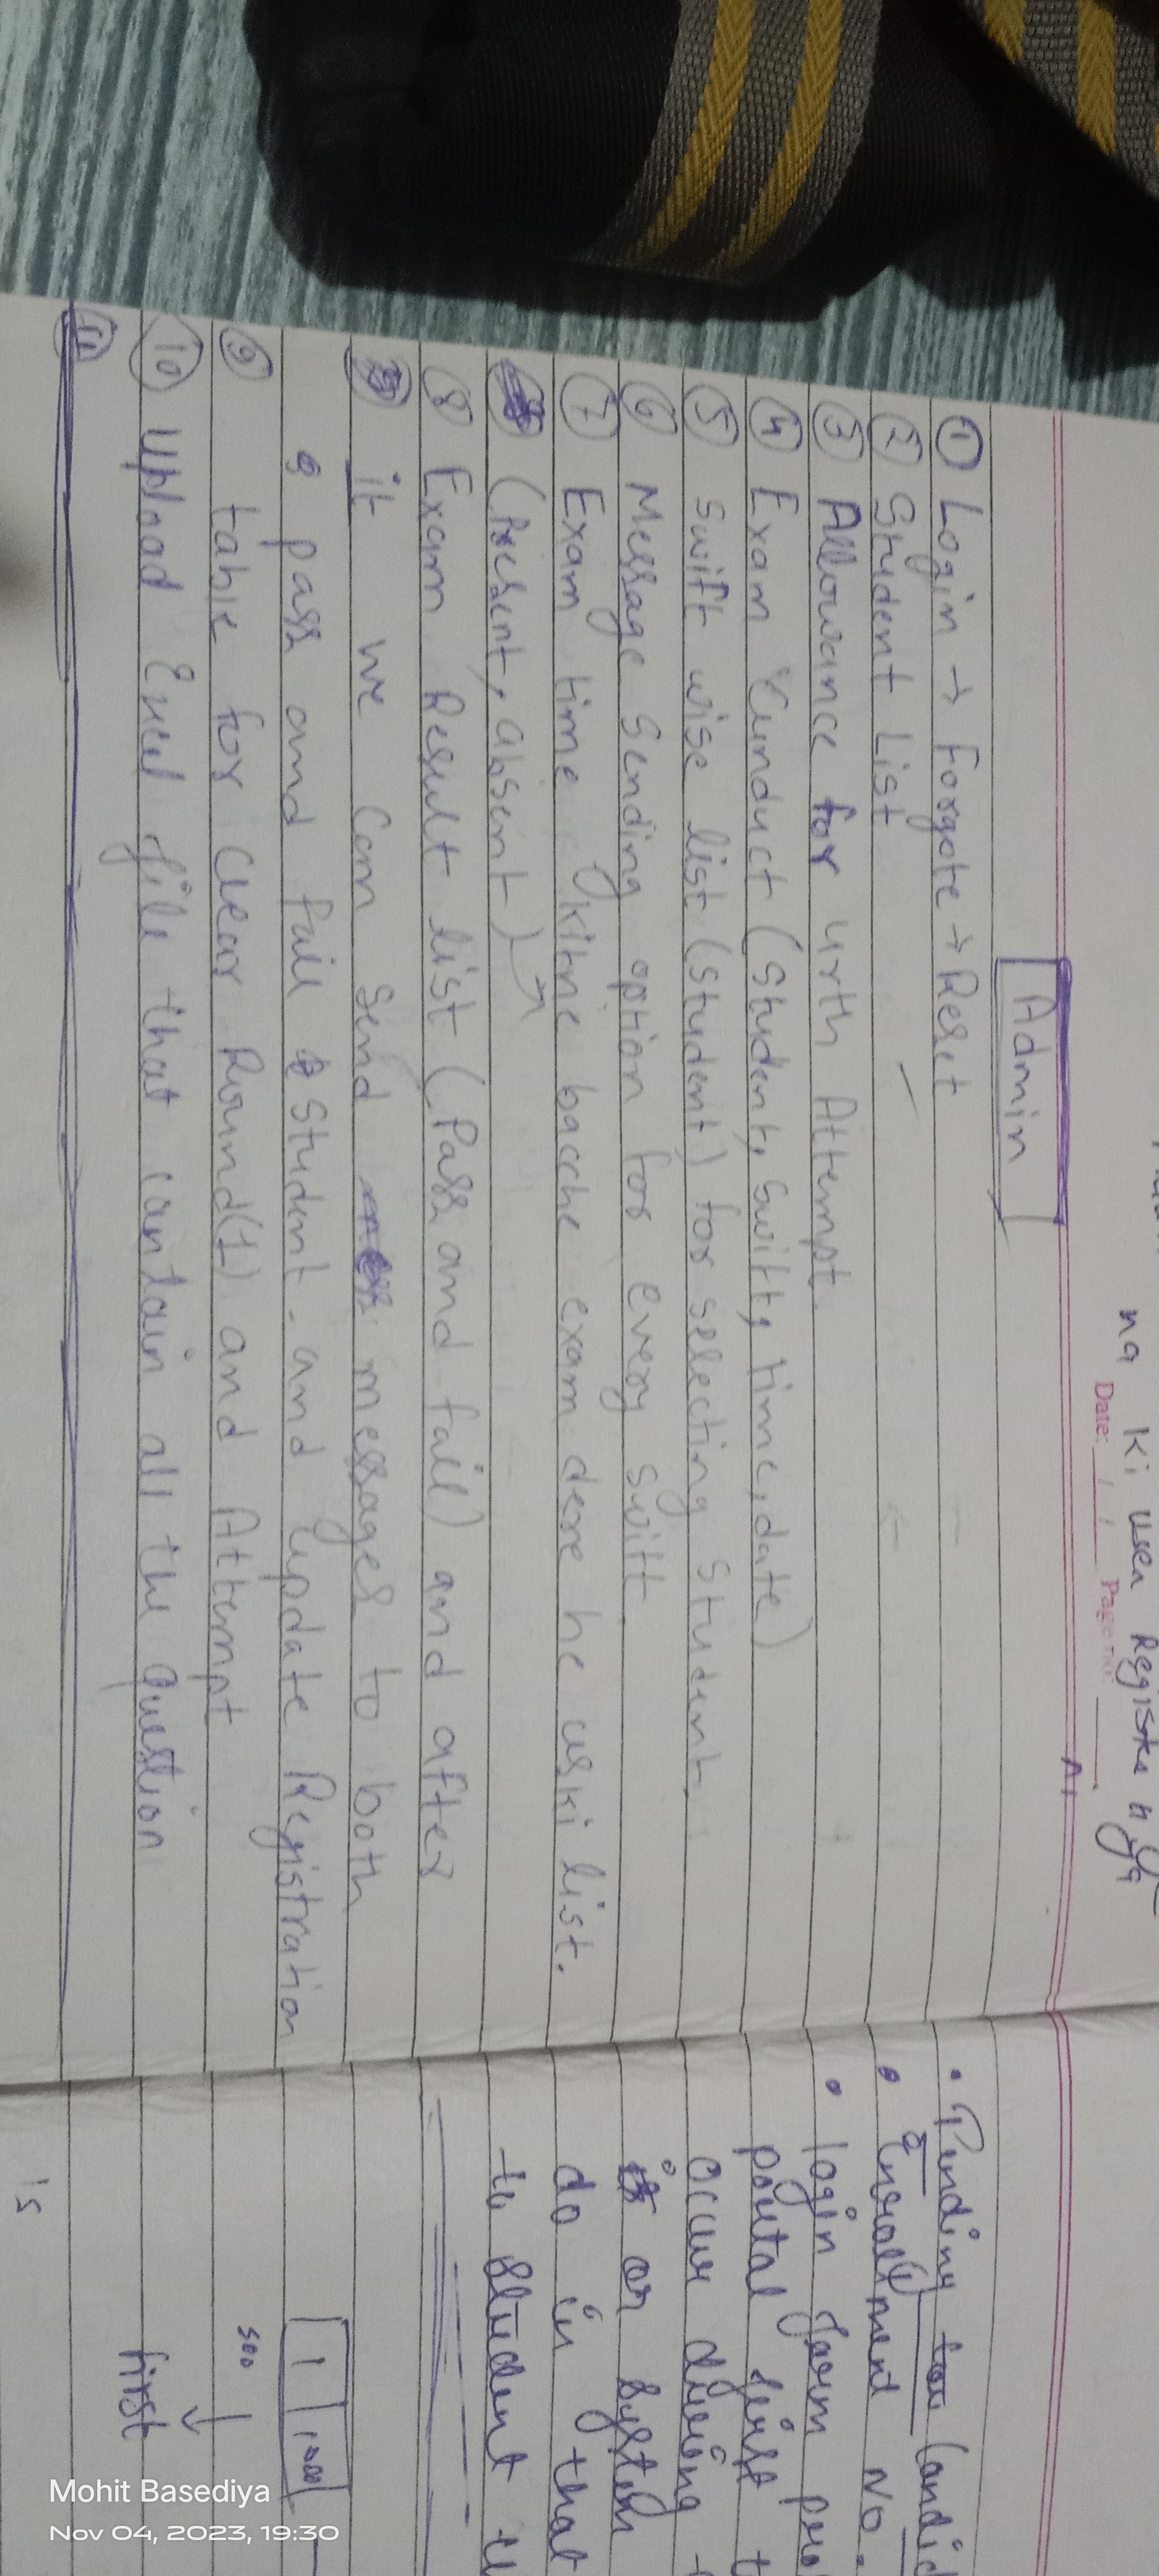 na Ki user Registe
Date: / / Page no:
Admin
① Login → Forgote → Reset
② Student List
③ Allowance for 4rth Attempt.
④ Exam Cunduct (Student, Swift, time, date)
⑤ Swift wise list (Student) for selecting Student.
⑥ Message Sending option for every swift.
⑦ Exam time kitne bacche exam dere he uski list.
(Present, absent)
⑧ Exam Result list (Pass and fail) and after
it we can Send messages to both
pass and fail Student. and update Registration
⑨ table for Clear Round(1) and Attempt
⑩ Upload Excel file that contain all the Question
⑪
• Pending Candid
• Enrollment NO.
• login form pro
portal first t
occur during
or System
do in that
to Student u
1 1000
500
↓
first
15
Mohit Basediya
Nov 04, 2023, 19:30